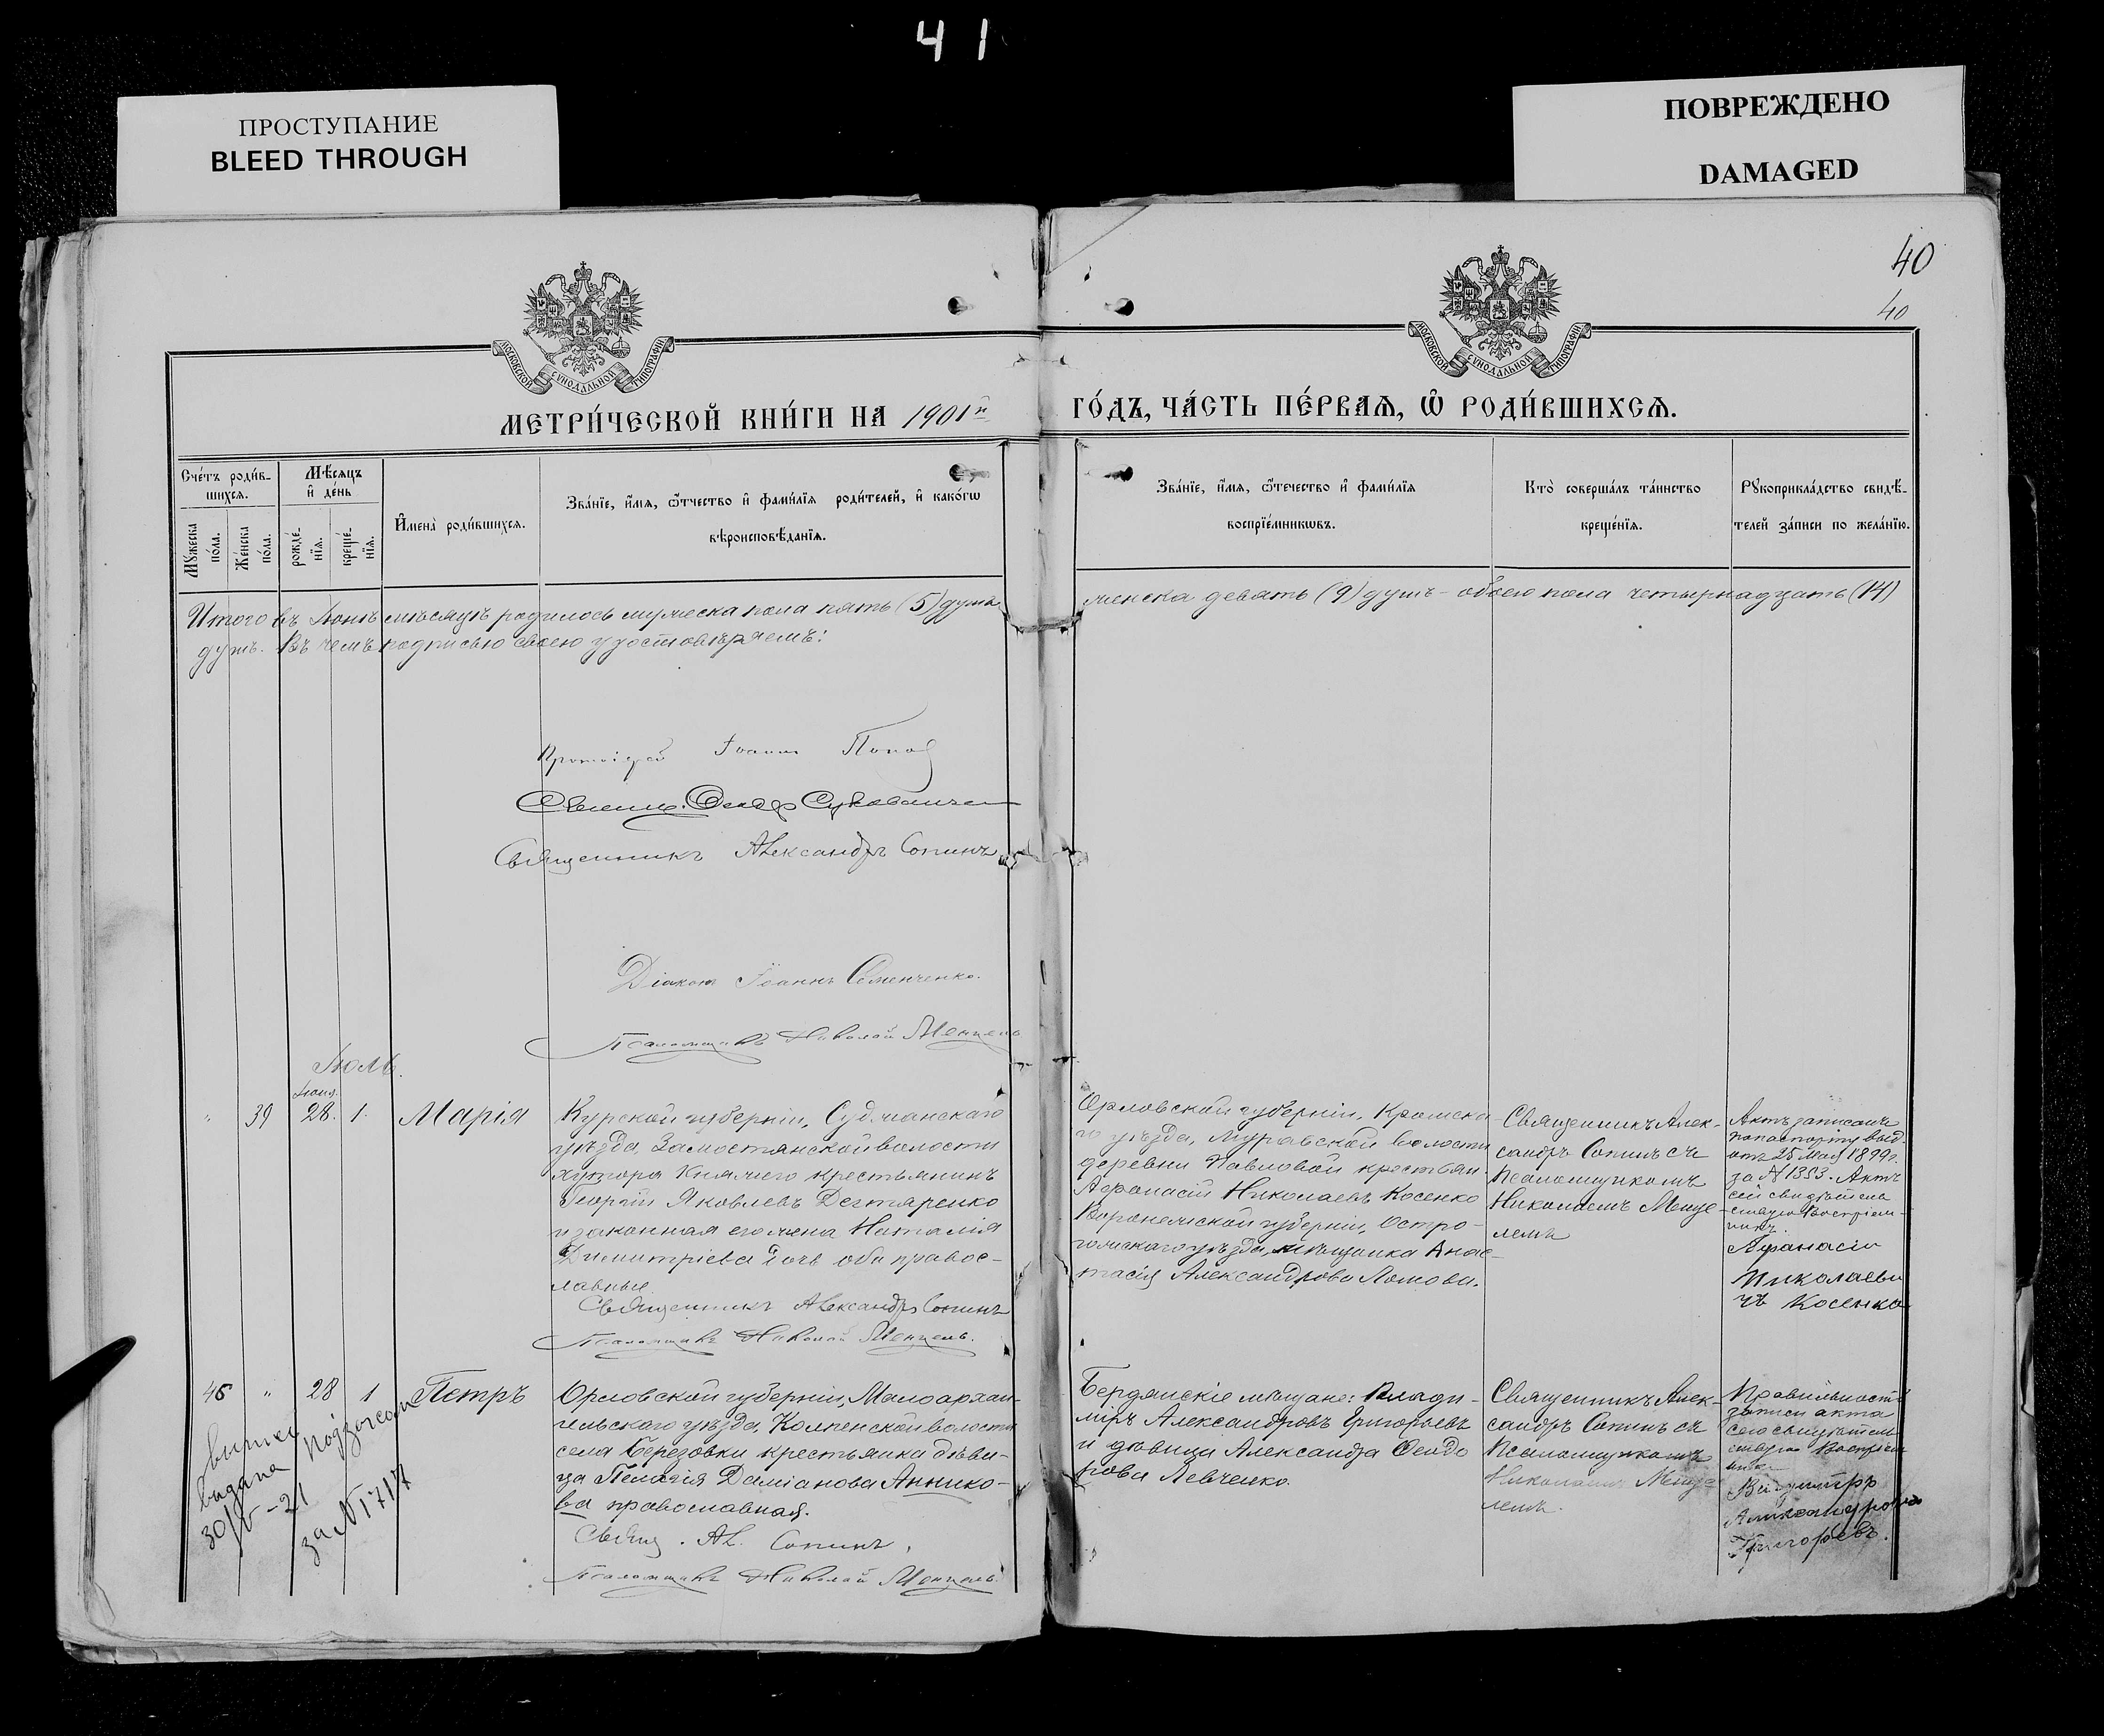 41
ПРОСТУПАНИЕ
BLEED THROUGH
ПОВРЕЖДЕНО
DAMAGED
40
40
МОСКОВСКОЙ СѴНОДАЛЬНОЙ ТИПОГРАФІИ
МОСКОВСКОЙ СѴНОДАЛЬНОЙ ТИПОГРАФІИ
МЕТРИ́ЧЕСКОЙ КНИ́ГИ НА 1901й
ГО́ДЪ, ЧА́СТЬ ПЕ́РВАѦ, Ѽ РОДИ́ВШИХСѦ.
Сче́тъ роди́в-
шихсѧ.
Мѣ́сѧцъ
и҆ де́нь
Мꙋ́жеска
по́ла.
Же́нска
по́ла.
рожде́-
нїѧ.
креще́-
нїѧ.
И҆мена̀ роди́вшихсѧ.
Зва́нїе, и҆́мѧ, ѻ҆́тчество и҆ фами́лїѧ роди́телей, и҆ како́гѡ
вѣроисповѣ́данїѧ.
Зва́нїе, и҆́мѧ, ѻ҆́течество и҆ фами́лїѧ
воспрїе́мникѡвъ.
Кто̀ соверша́лъ та́инство
креще́нїѧ.
Рꙋкоприкла́дство свидѣ́-
телей за́писи по жела́нїю.
Итого въ Іюнѣ мѣсяцѣ родилось мужеска пола пять (5) душъ
женска девять (9) душъ - обоего пола четырнадцать (14)
душъ. Въ чемъ подписью своею удостовѣряемъ:
Протоіерей Іоаннъ Попов
Священникъ Александръ Сопинъ
Діаконъ Іоаннъ Семенченко.
Псаломщикъ Николай Менцель
Іюль.
Іюня.
" 39 28. 1. Марія
Курской губерніи, Суджанскаго
уѣзда, Замостянской волости
хутора Княжего крестьянинъ
Георгій Яковлевъ Дегтяренко
и законная его жена Наталія
Димитріева дочь оба правос-
лавные
Священникъ Александръ Сопинъ
Псаломщикъ Николай Менцель.
Орловской губерніи, Кромска-
го уѣзда, Муравской волости
деревни Павловой крестьян.
Афанасій Николаевъ Косенко
Воронежской губерніи, Остро-
гожскаго уѣзда, мѣщанка Анас-
тасія Александрова Ломова.
Священникъ Алек-
сандръ Сопинъ съ
Псаломщикомъ
Николаемъ Менце-
лемъ
Актъ записанъ
по паспорту выд.
отъ 25 Мая 1899 г.
за № 1353. Актъ
сей свидѣтель-
ствую Воспріем-
никъ.
Афанасій
Николаеви
чъ Косенко
46 " 28 1 Петръ
Орловской губерніи, Малоархан-
гельскаго уѣзда, Колпенской волости
села Березовки крестьянка дѣви-
ца Пелагія Даміанова Аннико-
ва православная.
Свящ. Ал. Сопинъ.
Псаломщикъ Николай Менцель.
Бердянскіе мѣщане: Влади-
міръ Александровъ Григорьевъ
и дѣвица Александра Феодо
рова Левченко.
Священникъ Алек-
сандръ Сопинъ съ
Псаломщикомъ
Николаемъ Менце-
лемъ.
Правильность
записи акта
сего свидѣтель
ствую Воспріем
никъ
Александровъ
Григорьевъ.
видана
30/V-21
за № 1717